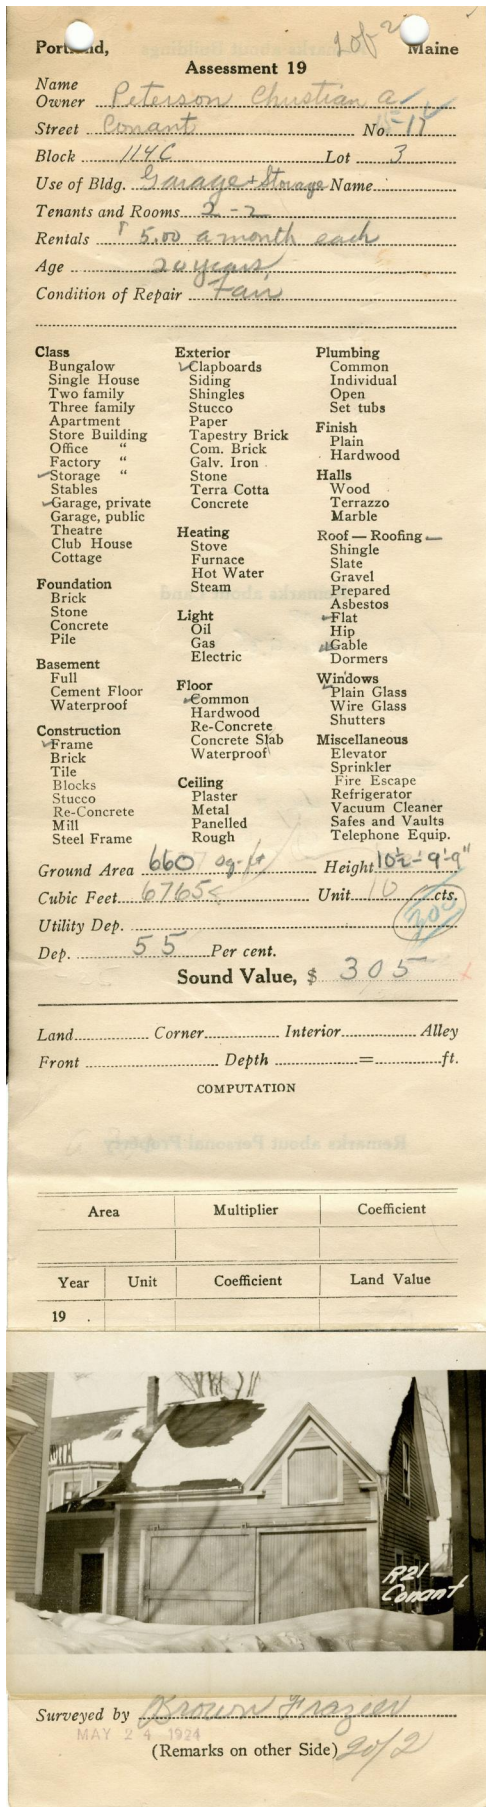 2 of 2
Portland, Maine
Assessment 19
Name
Owner Peterson Christian A
Street Conant No. 15-17
Block 114C Lot 3
Use of Bldg. Garage + Storage Name
Tenants and Rooms 2-2
Rentals $5.00 a month each
Age 20 years
Condition of Repair Fair
Class
Bungalow
Single House
Two family
Three family
Apartment
Store Building
Office "
Factory "
✓Storage "
Stables
✓Garage, private
Garage, public
Theatre
Club House
Cottage
Foundation
Brick
Stone
Concrete
Pile
Basement
Full
Cement Floor
Waterproof
Construction
✓Frame
Brick
Tile
Blocks
Stucco
Re-Concrete
Mill
Steel Frame
Exterior
✓Clapboards
Siding
Shingles
Stucco
Paper
Tapestry Brick
Com. Brick
Galv. Iron
Stone
Terra Cotta
Concrete
Heating
Stove
Furnace
Hot Water
Steam
Light
Oil
Gas
Electric
Floor
✓Common
Hardwood
Re-Concrete
Concrete Slab
Waterproof
Ceiling
Plaster
Metal
Panelled
Rough
Plumbing
Common
Individual
Open
Set tubs
Finish
Plain
Hardwood
Halls
Wood
Terrazzo
Marble
Roof — Roofing
Shingle
Slate
Gravel
Prepared
Asbestos
✓Flat
Hip
✓Gable
Dormers
Windows
✓Plain Glass
Wire Glass
Shutters
Miscellaneous
Elevator
Sprinkler
Fire Escape
Refrigerator
Vacuum Cleaner
Safes and Vaults
Telephone Equip.
Ground Area 660 sq. ft Height 10½-9'-9"
Cubic Feet 6765 Unit 10 cts.
300
Utility Dep.
Dep. 55 Per cent.
Sound Value, $ 305
Land Corner Interior Alley
Front Depth = ft.
COMPUTATION
Area Multiplier Coefficient
Year Unit Coefficient Land Value
19 .
R21
Conant
Surveyed by Brown Frazier
MAY 24 1924
(Remarks on other Side) 2 of 2